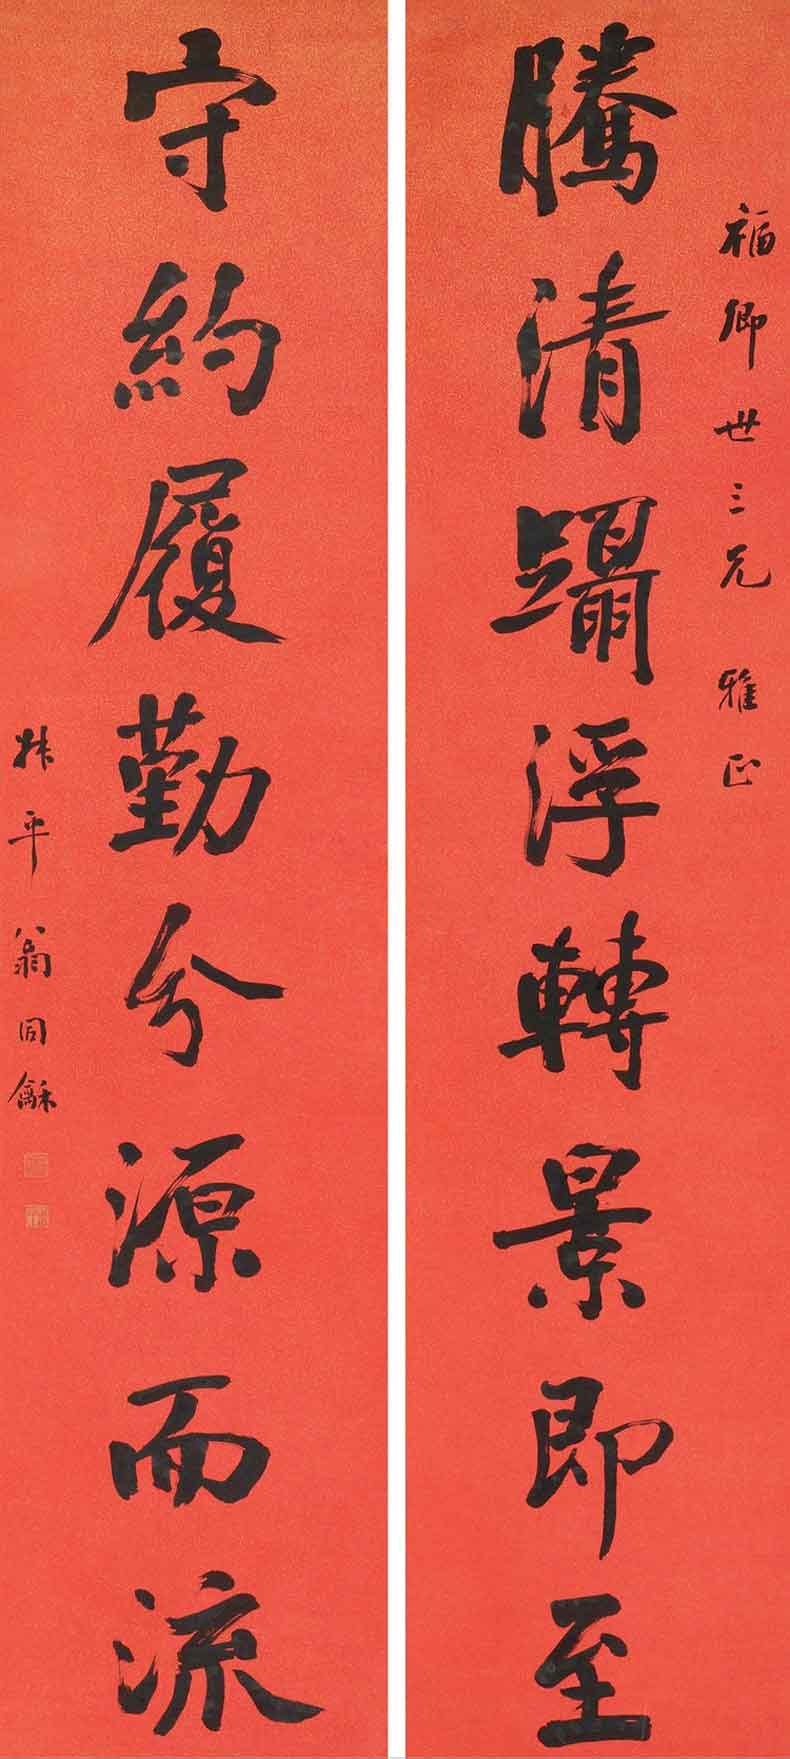 福卿世三兄 雅正
騰清躡浮轉景即至
守約履勤分源而流
叔平翁同龢